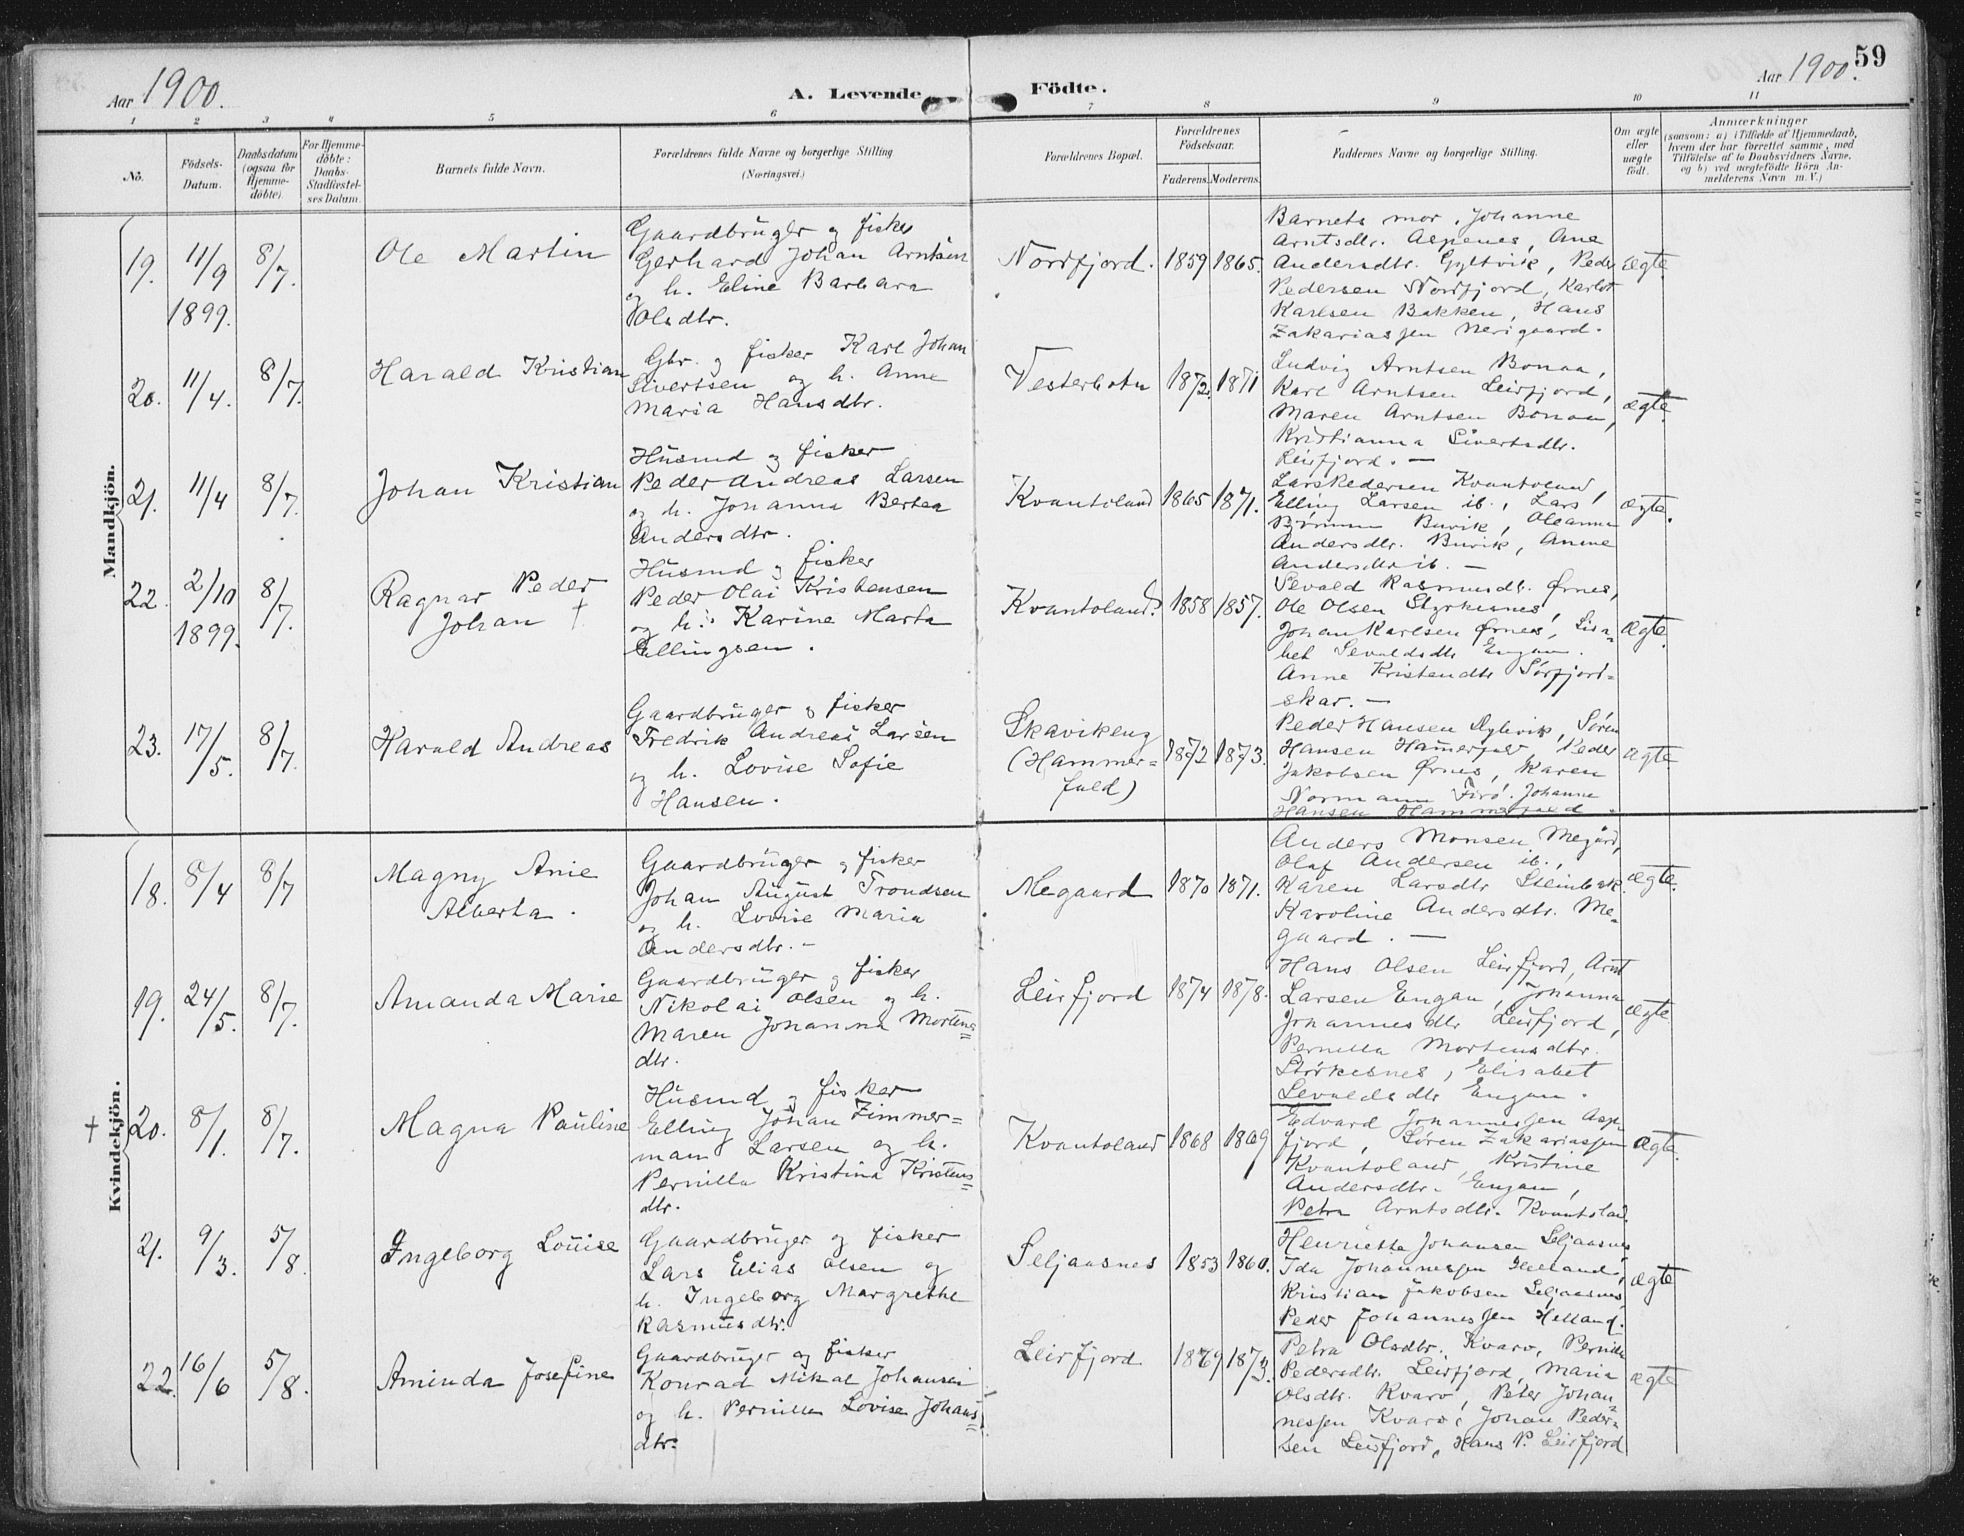 59
Aar 1900. A. Levende Födte. Aar 1900.
1 2 3 4 5 6 7 8 9 10 11
No. Födsels-Datum. Daabsdatum (ogsaa for Hjemme-döbte) For Hjemme-döbte: Daabs-Stadfæstel-ses Datum. Barnets fulde Navn. Forældrenes fulde Navne og borgerlige Stilling (Næringsvei.) Forældrenes Bopæl. Forældrenes Födselsaar. Faderens. Moderens. Faddernes Navne og borgerlige Stilling. Om ægte eller uægte födt. Anmærkninger (saasom: a) i Tilfælde af Hjemmedaab, hvem der har forrettet samme, med Tilföielse af to Daabsvidners Navne, og b) ved uægtefödte Börn An-melderens Navn m.V.)
Mandkjön.
19. 11/9 1899. 8/7. Ole Martin
Gaardbruger og fisker
Gerhard Johan Arntsen
og h. Eline Barbara
Olsdtr.
Nordfjord. 1859 1865.
Barnets mor, Johanne
Arntsdtr. Aspenes, Ane
Andersdtr. Gyltvik, Peder
Pedersen Nordfjord, Karlot
Karlsen Bakken, Hans
Zakariassen Nerigaard.
Ægte.
20. 11/4. 8/7. Harald Kristian
Gbr. og fisker Karl Johan
Sivertsen og h. Anne
Maria Hansdtr.
Vesterbotn 1872. 1871
Ludvig Arntsen Bonaa,
Karl Arntsen Leirfjord,
Maren Arntsen Bonaa,
Kristianna Sivertsdtr.
Leirfjord. —
ægte.
21. 11/4 8/7. Johan Kristian
Husmd og fisker
Peder Andreas Larsen
og h. Johanna Bertea
Andersdtr.
Kvantoland 1865 1871.
Lars Pedersen Kvantoland,
Elling Larsen ib., Lars
Buvik, Oleanna
Andersdtr. Buvik, Anne
Andersdtr ib. —
ægte.
22. 2/10 1899. 8/7. Ragnar Peder
Johan †
Husmd og fisker
Peder Olai Kristensen
og h. Karine Marta
Ellingsen.
Kvantoland. 1858 1857.
Sevald Rasmusdtr. Ørnes,
Ole Olsen Styrkesnes,
Johan Karlsen Ørnes, Lisa-
bet Sevaldsdtr Engan.
Anne Kristendtr Sørfjord-
skar. —
Ægte.
23. 17/5. 8/7. Harald Andreas
Gaardbruger og fisker
Fredrik Andreas Larsen
og h. Lovise Sofie
Hansen.
Skavikeng
(Hammer-
fald)
1872 1873.
Peder Hansen Nylevik, Søren
Hansen Hamerfald, Peder
Jakobsen Ørnes, Karen
Normann Johanna
Hansen Hammerfald
ægte
Kvindekjön.
18. 8/4 8/7 Magny Anie
Alberta.
Gaardbruger og fisker
Johan August Trondsen
og h. Lovise Maria
Andersdtr. —
Megaard 1870 1871.
Anders Monsen Megård,
Olaf Andersen ib.,
Karen Larsdtr Steinbak.
Karoline Andersdtr. Me-
gaard. —
ægte.
19. 24/5. 8/7. Amanda Marie
Gaardbruger og fisker
Nikolai Olsen og h.
Maren Johanna Mortens-
dtr.
Leirfjord 1874 1878.
Hans Olsen Leirfjord, Arnt
Larsen Engan, Johanna
Johannesdtr Leirfjord,
Pernilla Mortensdtr.
Störkesnes, Elisabet
Sevaldsdtr Engan.
ægte.
† 20. 8/1. 8/7. Magna Pauline
Husmd og fisker
Elling Johan Zimmer-
mann Larsen og h.
Pernilla Kristina Kristens-
dtr.
Kvantoland 1868 1869
Edvard Johannessen Asp-
fjord, Søren Zakariassen
Kvantoland, Kristine
Andersdtr. Engan,
Petra Arntsdtr. Kvantoland.
ægte.
21. 9/3. 5/8. Ingeborg Louise
Gaardbruger og fisker
Lars Elias Olsen og
h. Ingeborg Margrethe
Rasmusdtr.
Seljaasnes 1853 1860.
Henriette Johansen Seljaasnes
Ida Johannessen Helland,
Kristian Jakobsen Seljaasnes,
Peder Johannessen Helland.
ægte
22. 16/6 5/8. Aminda Josefine
Gaardbruger og fisker
Konrad Mikal Johansen
og h. Pernilla Lovise Johans-
dtr.
Leirfjord 1879 1873.
Petra Olsdtr. Kvarv, Pernilla
Pedersdtr. Leirfjord, Maria
Olsdtr. Kvarv, Peter Johan-
nessen Kvarv, Johan Peder-
sen Leirfjord, Hans P. Leirfjord
ægte